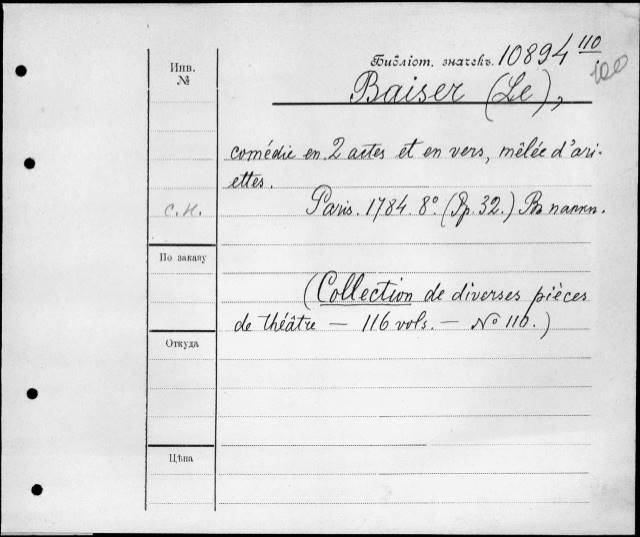 Библіот. значекъ. 10894 110
100
Инв.
№
Baiser (Le),
comédie en 2 actes et en vers, mêlée d'ari-
ettes.
с. н.
Paris. 1784. 8º. (Pp. 32.) Въ папкѣ.
По заказу
(Collection de diverses pièces
de théâtre — 116 vols. — № 110.)
Откуда
Цѣна